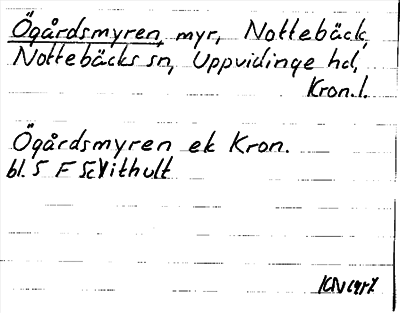 Ögårdsmyren, myr, Nottebäck,
Nottebäcks sn, Uppvidinge hd,
Kron.l.
Ögårdsmyren ek Kron.
bl. 5 F